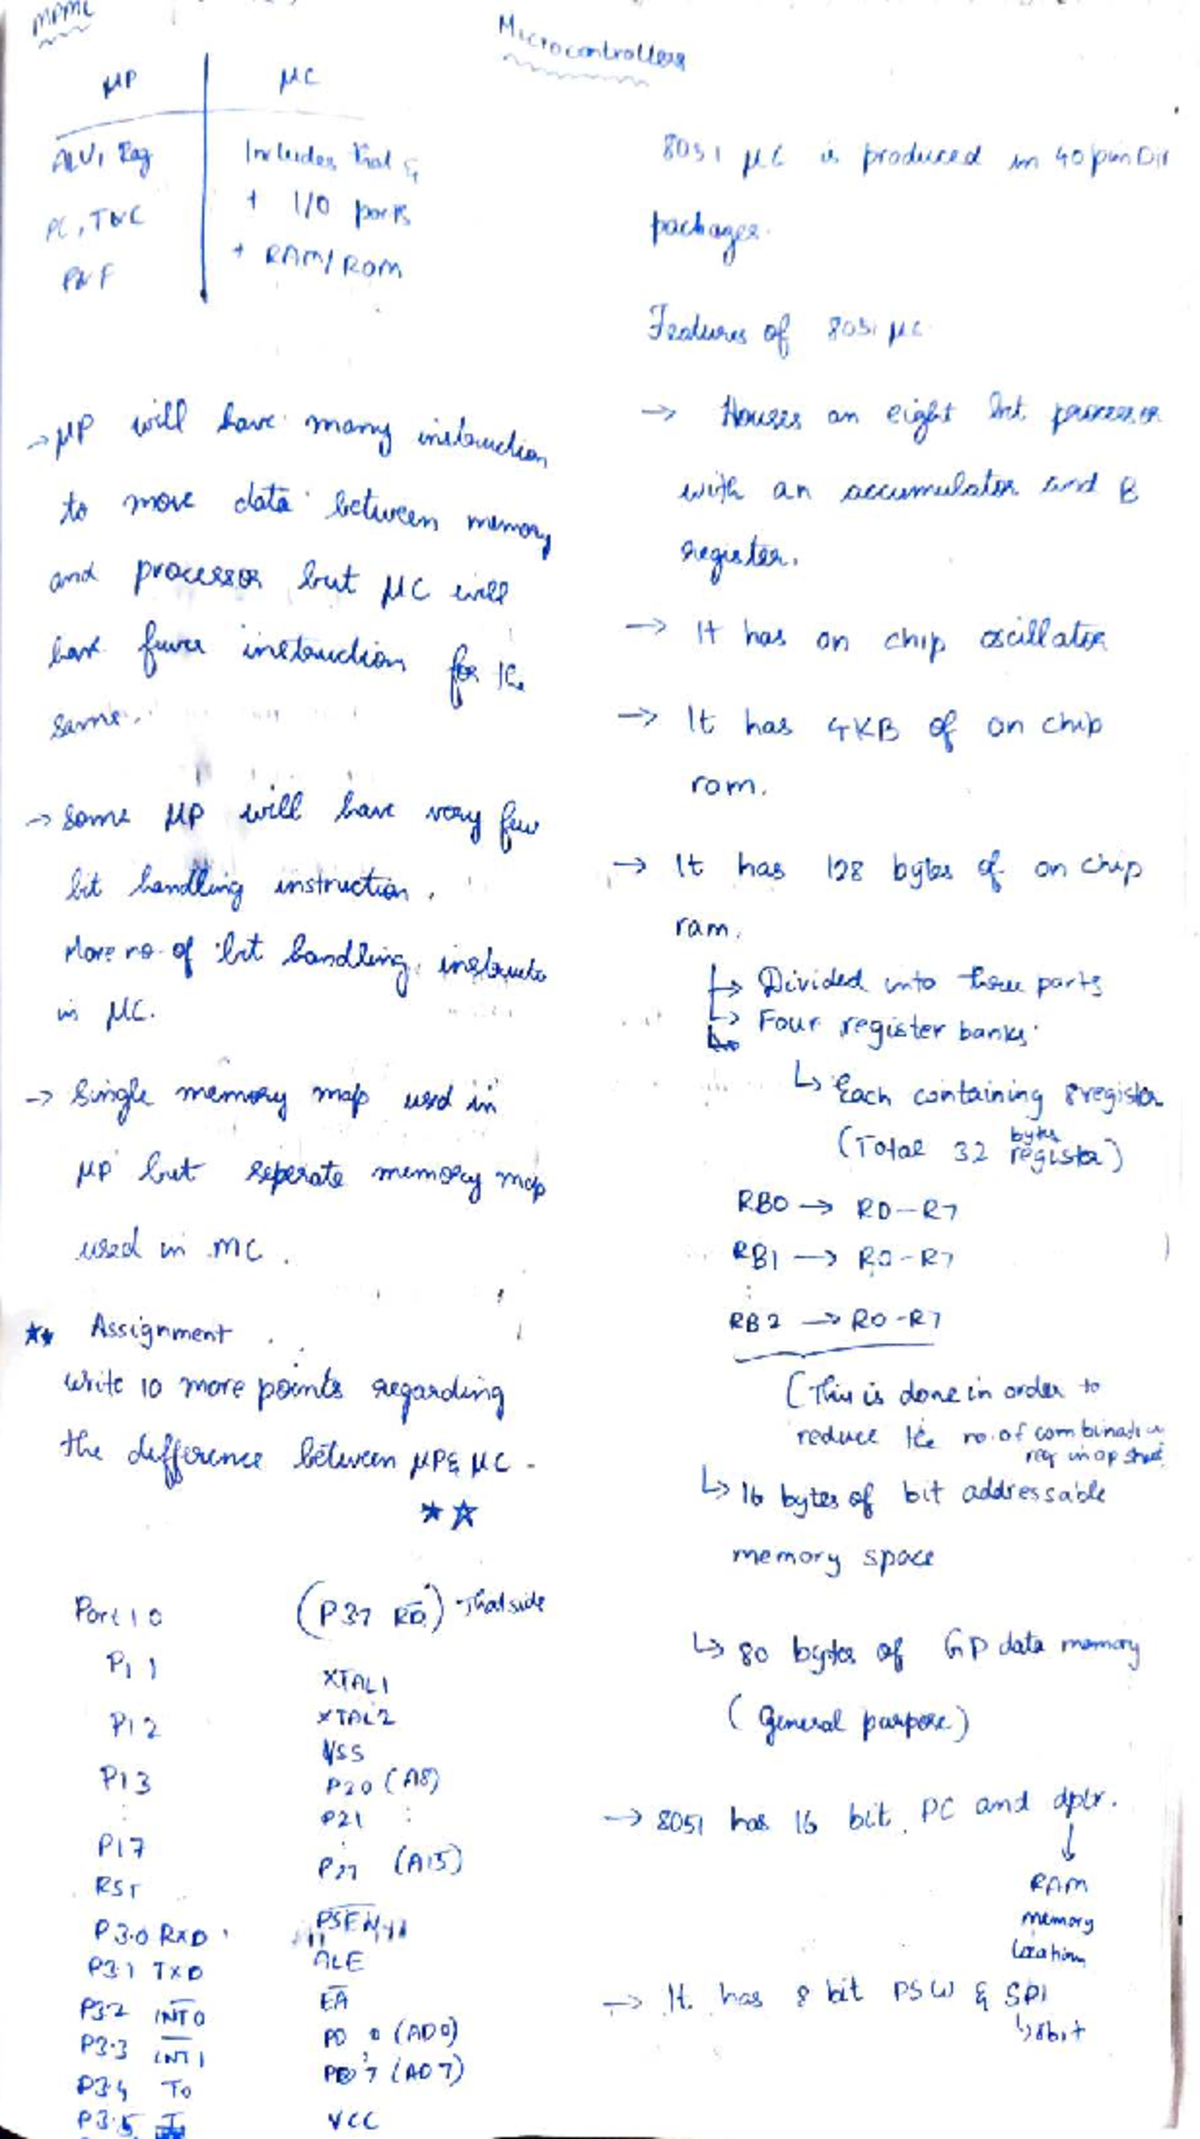 MPMC
Microcontrollers
μP μC
ALU, Reg Includes that &
PC, T&C + I/O ports
+ RAM/ROM
→ μP will have many instruction
to move data between memory
and processor but μC will
have fewer instruction for the
same.
→ Some μP will have very few
bit handling instruction.
More no. of bit handling
in μC.
→ Single memory map used in
μP but seperate memory map
used in MC.
Assignment
write 10 more points regarding
the difference between μP & μC.
Port 1 0 (P3.7 RD) - That side
P1 1 XTAL1
P1 2 XTAL2
P1 3 VSS
: P20 (A8)
P17 P21 :
RST P27 (A15)
P3.0 RXD PSEN
P3.1 TXD ALE
P3.2 INT0 EA
P3.3 INT1 P0 0 (AD0)
P3.4 T0 P0 7 (AD7)
P3.5 VCC
8051 μC is produced in 40 pin DIP
packages.
Features of 8051 μC
→ Houses an eight bit processor
with an accumulator and B
register.
→ It has on chip oscillator
→ It has 4KB of on chip
rom.
→ It has 128 bytes of on chip
ram.
↳ Divided into three parts
↳ Four register banks
↳ Each containing 8 register
(Total 32 bytes register)
RB0 → R0-R7
RB1 → R0-R7
:
RB2 → R0-R7
(This is done in order to
reduce the no. of combination
req in op
↳ 16 bytes of bit addressable
memory space
↳ 80 bytes of GP data memory
(General purpose)
→ 8051 has 16 bit PC and dptr.
↓
RAM
memory
location
→ It has 8 bit PSW & SP
↳ 8bit